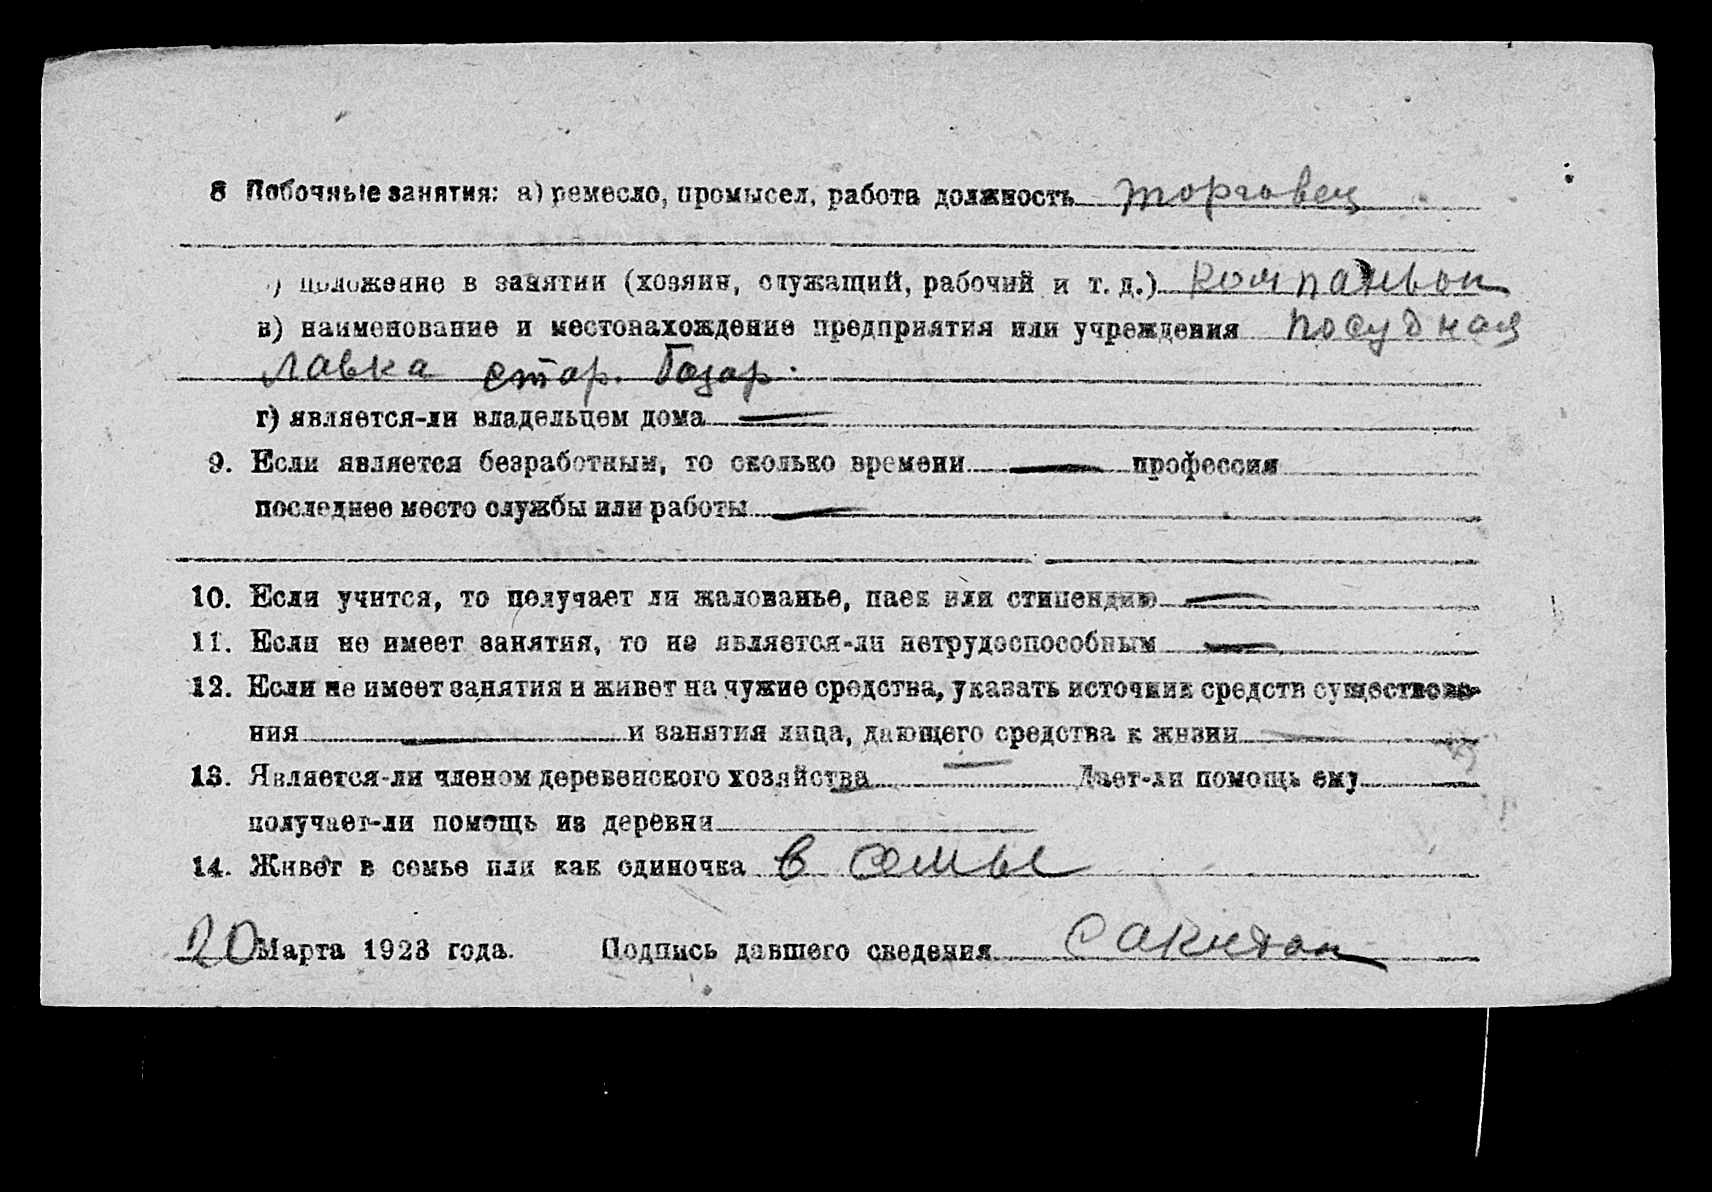 8 Побочные занятия: а) ремесло, промысел, работа должность торговец
) положение в занятии (хозяин, служащий, рабочий и т. д.) компаньон
в) наименование и местонахождение предприятия или учреждения посудная
лавка стар. базар.
г) является-ли владельцем дома —
9. Если является безработным, то сколько времени — профессия
последнее место службы или работы —
10. Если учится, то получает ли жалованье, паек или стипендию —
11. Если не имеет занятия, то не является-ли нетрудоспособным —
12. Если не имеет занятия и живет на чужие средства, указать источник средств существова-
ния — и занятия лица, дающего средства к жизни —
13. Является-ли членом деревенского хозяйства — Дает-ли помощь ему
получает-ли помощь из деревни
14. Живет в семье или как одиночка в семье
20 Марта 1923 года. Подпись давшего сведения